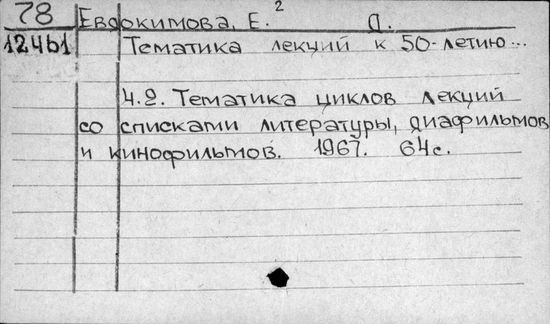 78 Евдокимова, Е. 2 Д.
12461 Тематика лекций к 50-летию...
Ч.2. Тематика циклов лекций
со списками литературы, диафильмов
и кинофильмов. 1967. 64с.